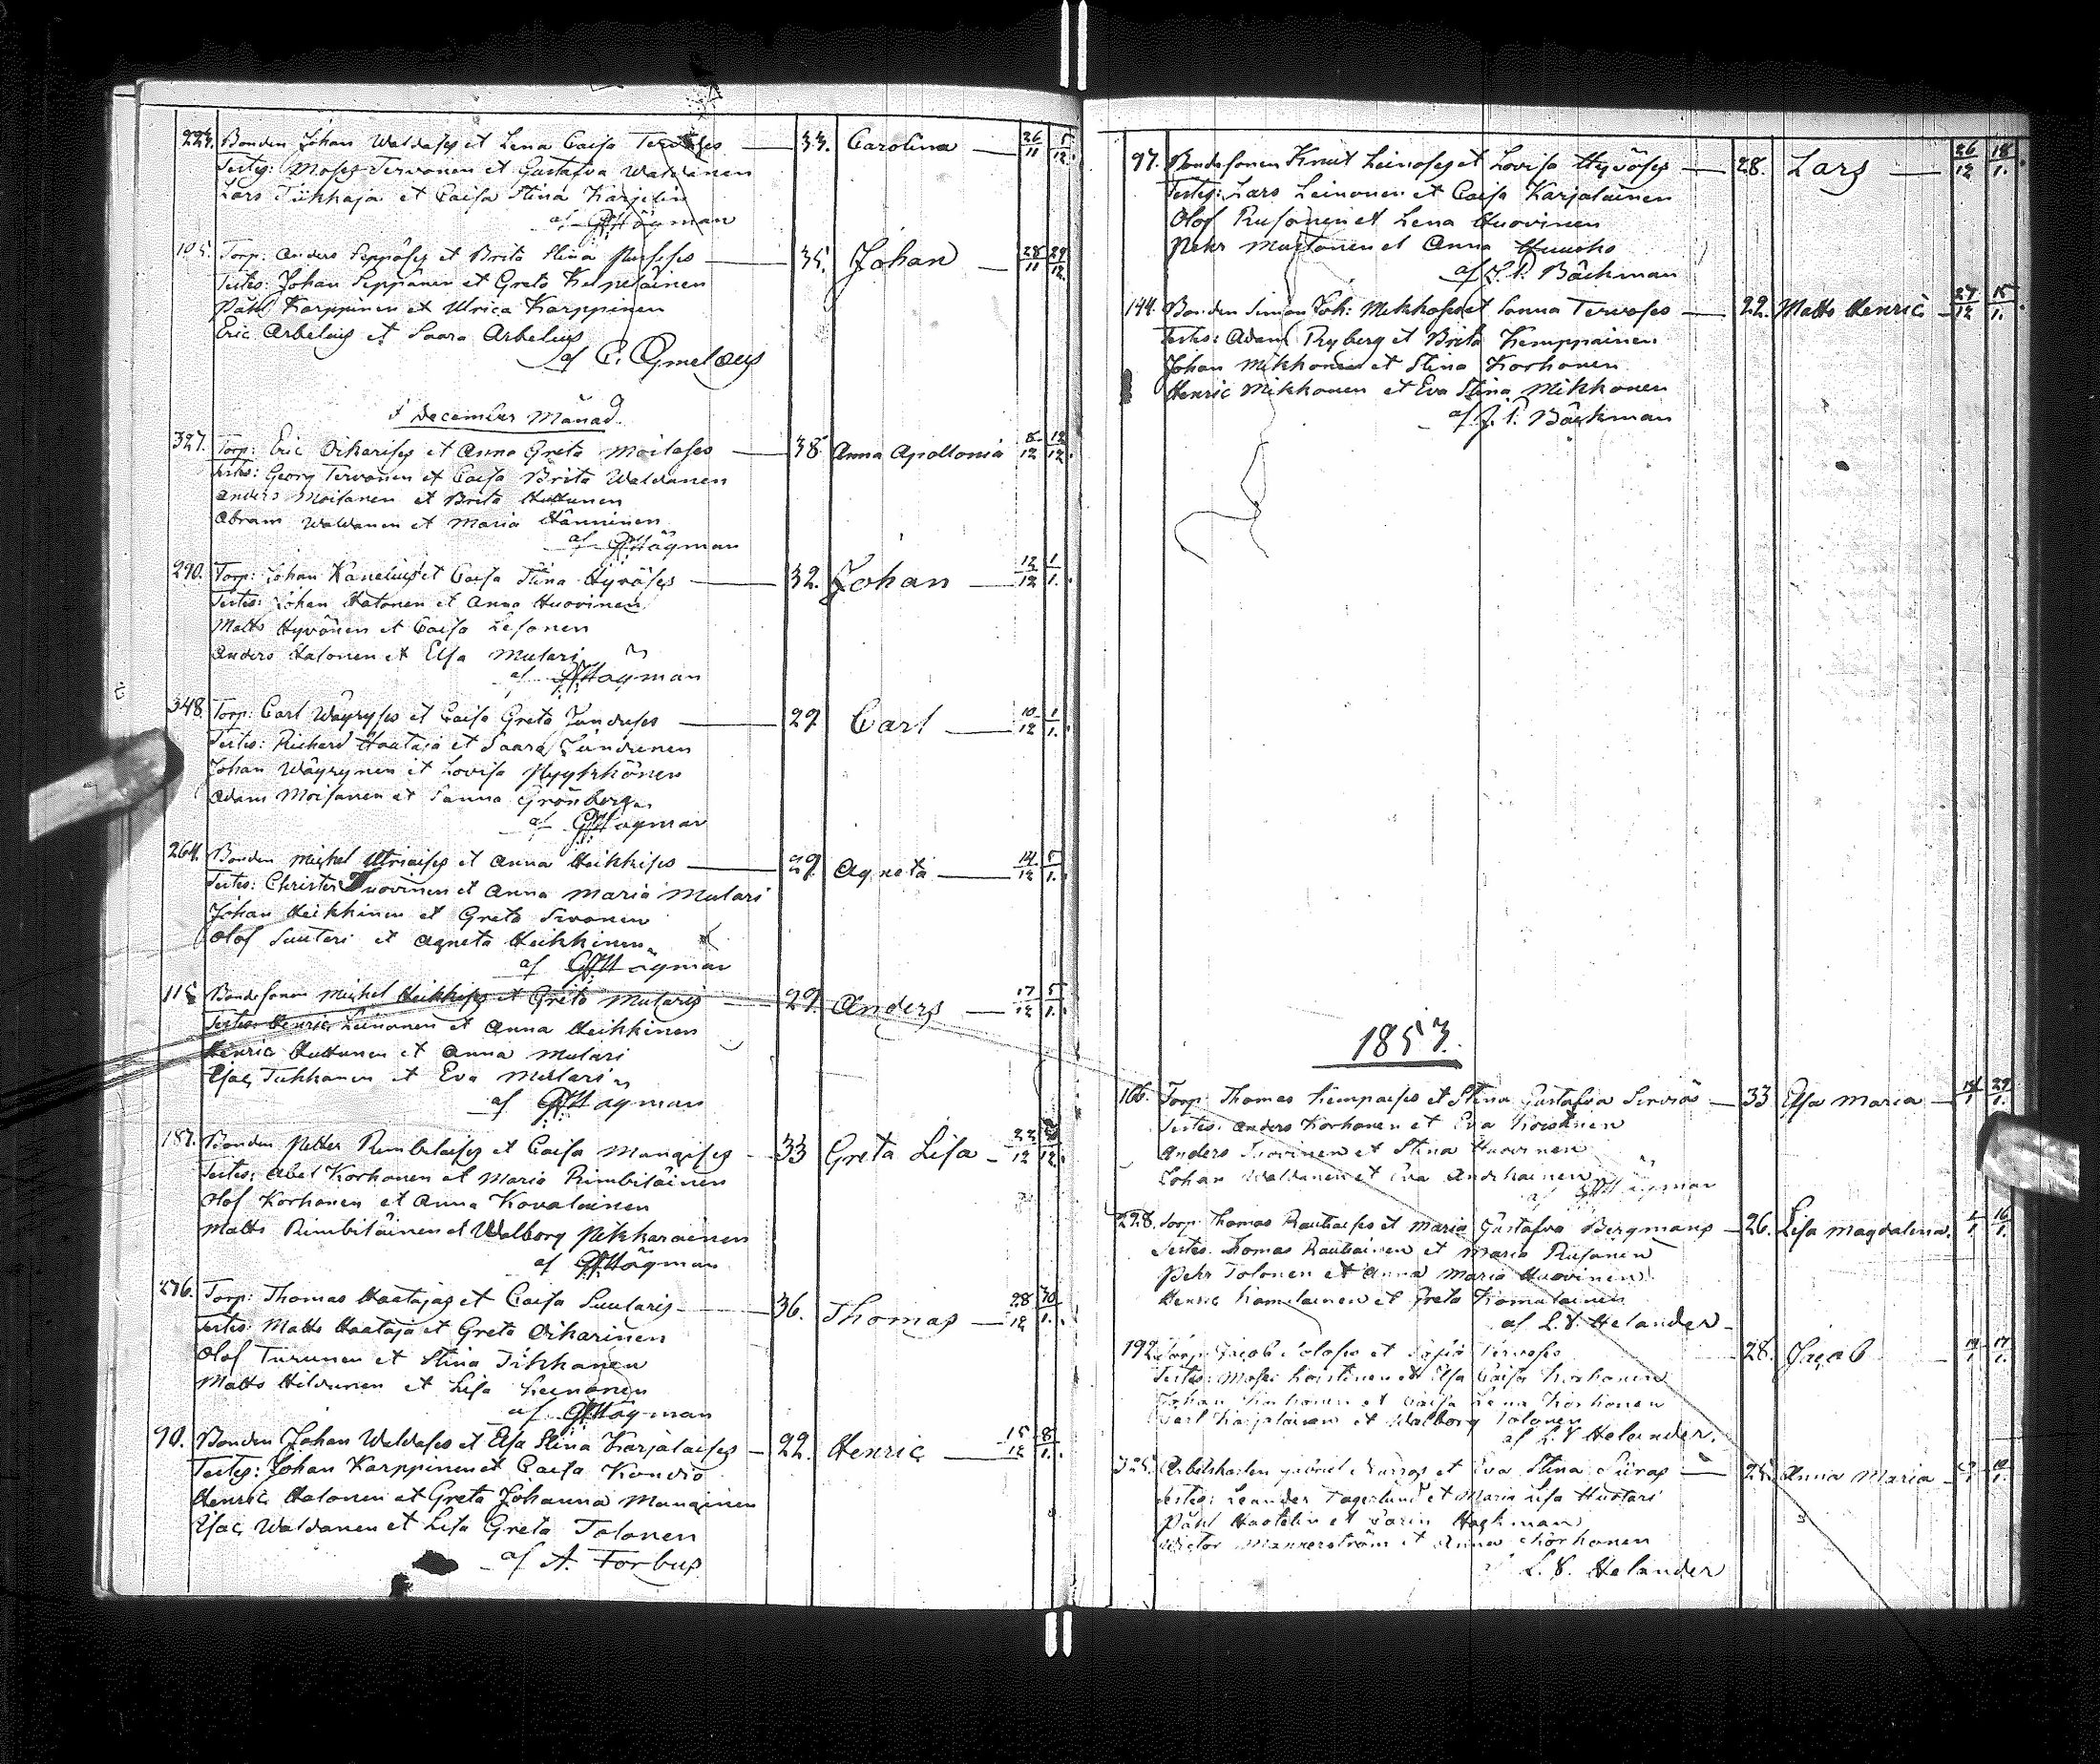 223. Bonden Johan Waldases et Lena Caisa Tervoses 33. Carolina 26/11 5/12.
Testes: Moses Tervonen et Gustafva Waldanen
Lars Tikkaja et Caisa Stina Karjelin
af GHHögman
105. Torp: Anders Seppäses et Brita Stina 35. Johan 28/11 29/12.
Testes: Johan Seppänen et Greta Kerpeläinen
Påhl Karppinen et Ulrica Karppinen
Eric Arbelius et Saara Arbelius
af C. Cymelæus
I December Månad.
327. Torp: Eric Oikarises et Anna Greta Moilases 38 Anna Apollonia 12
Testes: Georg Tervonen et Caisa Brita Waldanen
Anders Moisanen et Brita Huttunen
Abram Waldanen et Maria Hänninen
af Högman
290. Torp: Johan Kanelius et Caisa Stina Hyväses 32. Johan 12/12 1/1.
Testes: Johan Hatonen et Anna Huovinen
Matts Hyvönen et Caisa Lesonen
Anders Halonen et Elsa Mulari
af Högman
348. Torp: Carl Wäyryses et Caisa Greta Junduses 29 Carl 10/12 1/1.
Testes: Richard Haataja et Saara Jundunen
Johan Wäyrynen et Lovisa Pyykkönen
Adam Moisanen et Sanna Grönberg
af Högman
264. Bonden Michel Heikkises 29. Agneta 14/12 5/1.
Testes: Christer Tuovinen et Anna Maria Mulari
Johan Heikkinen et Greta Sivonen
Olof Suutari et Agneta Heikkinen
af Högman
115 Bondesonen Michel Heikkises et Greta Mularis 29. Anders 17/12 5/1.
Testes: Henric Leinonen et Anna Heikkinen
Henric Huttunen et Anna Mulari
Isac Tukkanen et Eva Mulari
af Högman
187. Bonden Petter Rimbilaises et Caisa Mangises 33 Greta Lisa 12
Testes: Abel Korhonen et Maria Rimbiläinen
Olof Korhonen et Anna Kovalainen
Matts Rimbiläinen et Walborg Pikkarainen
af Högman
276. Torp: Thomas Haatajas et Caisa Suutaris 36. Thomas 28/12 30/1.
Testes: Matts Haataja et Greta Oikarinen
Olof Turunen et Stina Tikkanen
Matts Hildunen et Lisa Leinonen
af Högman
90. Bonden Johan Waldases et Elsa Stina Karjalaises 22. Henric 15/12 8/1.
Testes: Johan Karppinen et Caisa Kondio
Henric Halonen et Greta Johanna Manginen
Isac Waldanen et Lisa Greta Tolonen
af A. Forbus
97. Bondesonen Knut Leinoses et Lovisa Hyväses 28. Lars 26/12 18/1.
Testes: Lars Leinonen et Caisa Karjalainen
Olof Rusanen et Lena Huovinen
Pehr Mustonen et Anna Huusko
af J. P. Bäckman
144. Bonden Simon Joh: Mikkoses et Sanna Tervoses 22. Matts Henric 27/12 15/1.
Testes: Adam Ryberg et Brita Kemppainen
Johan Mikkonen et Stina Korhonen
Henric Mikkonen et Eva Stina Mikkonen
af J. P. Bäckman
1853.
166. Torp: Thomas Kempaises et Stina Gustafva Serviäs 33 Elsa Maria 29/1.
Testes: Anders Korhonen et Eva Koistinen
Anders Tuovinen et Stina Huovinen
Johan Waldanen et Eva
af Högman
298. Torp: Thomas Rautiaises et Maria Gustafva Bergmans 26. Lisa Magdalena 16/1.
Testes: Thomas Rautiainen et Maria Rusanen
Pehr Tolonen et Anna Maria Huovinen
Henric Komulainen et Greta Komulainen
af L. V. Helander
192. Torp: Jacob Toloses et Sofia Tervoses 28. Jacob 17/1.
Testes: Moses Koistinen et Elsa Caisa Korhonen
Johan Korhonen et Caisa Lena Korhonen
Carl Karjalainen et Walborg Tolonen
af L. V. Helander.
325. Arbetskarlen Gabriel et Eva Stina Anna Maria
Testes: Leander Fagerlund et Maria Lisa Huotari
Påhl et Carin Hagman
Victor Mannerström et Anna Korhonen
af L. V. Helander